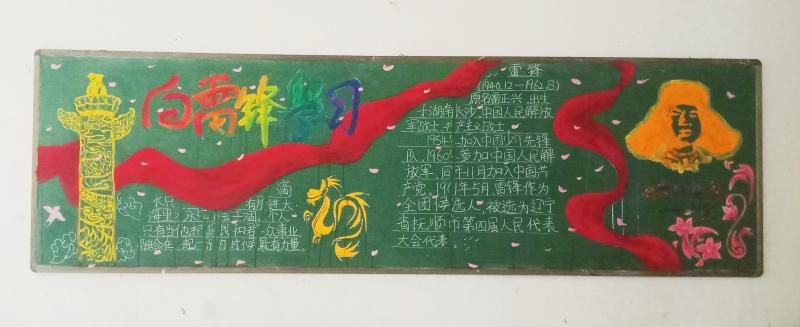 向雷锋学习
滴
水只 有 进大
海里 永 会干涸, 个人
只有当他把 己和 众事业
融合在 起 有 量
雷锋
(1940.12—1962.8)
原名雷正兴,出生
于湖南长沙,中国人民解放
军战士,共产主义战士。
1954年加入中国少年先锋
队,1960年参加中国人民解
放军,同年11月加入中国共
产党。1961年5月,雷锋作为
全团候选人,被选为辽宁
省抚顺市第四届人民代表
大会代表。